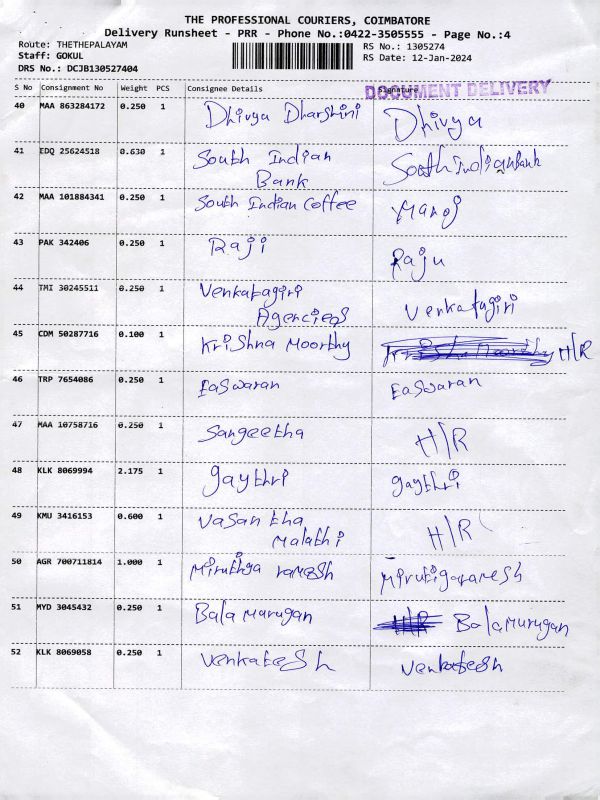 THE PROFESSIONAL COURIERS, COIMBATORE
Delivery Runsheet - PRR - Phone No.:0422-3505555 - Page No.:4
Route: THETHEPALAYAM RS No.: 1305274
Staff: GOKUL RS Date: 12-Jan-2024
DRS No.: DCJB130527404
DOCUMENT DELIVERY
S No Consignment No Weight PCS Consignee Details Signature
40 MAA 863284172 0.250 1 Dhivya Dharshini Dhivya
41 EDQ 25624518 0.630 1 South Indian South Indian Bank
Bank
42 MAA 101884341 0.250 1 South Indian Coffee Manoj
43 PAK 342406 0.250 1 Raji Raju
44 TMI 30245511 0.250 1 Venkatagiri Venkatagiri
Agencies
45 CDM 50287716 0.100 1 Krishna Moorthy Krishna Moorthy H/R
46 TRP 7654086 0.250 1 Easwaran Easwaran
47 MAA 10758716 0.250 1 Sangeetha H/R
48 KLK 8069994 2.175 1 gaythri gaythri
49 KMU 3416153 0.600 1 Vasantha H/R
Malathi
50 AGR 700711814 1.000 1 Miruthga ramesh Mirutigaramesh
51 MYD 3045432 0.250 1 Bala Marugan H/R Bala Murugan
52 KLK 8069058 0.250 1 Venkatesh Venkatesh